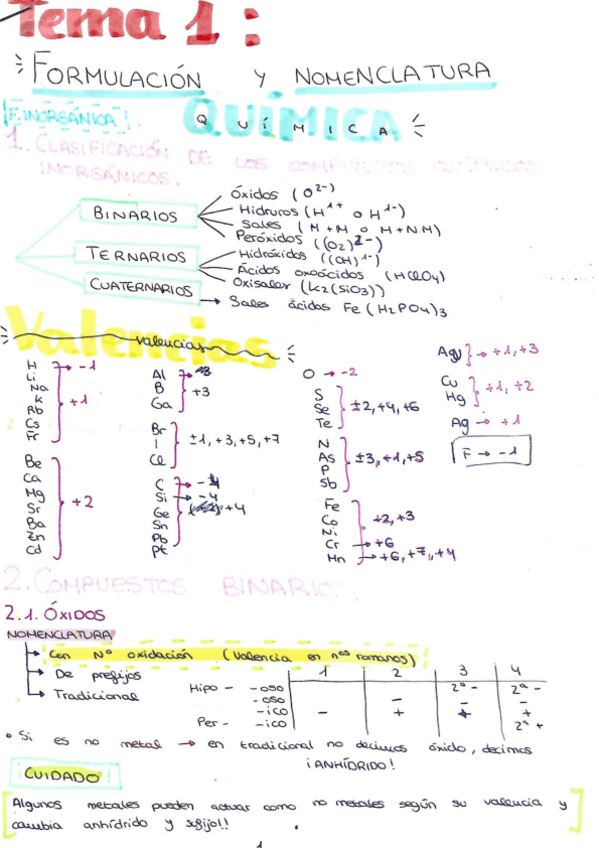 Tema 1:
FORMULACIÓN Y NOMENCLATURA
F. INORGÁNICA
QUÍMICA
1. CLASIFICACIÓN DE LOS COMPUESTOS QUÍMICOS
INORGÁNICOS.
BINARIOS
Óxidos (O2-)
Hidruros (H1+ o H1-)
Sales (M+M o M+NM)
Peróxidos ((O2)2-)
TERNARIOS
Hidróxidos ((OH)1-)
Ácidos oxoácidos (HClO4)
Oxisales (K2(SiO3))
CUATERNARIOS
→ Sales ácidas Fe(H2PO4)3
Valencias
valencias
H → -1
Li
Na
K
Rb
Cs
Fr
+1
Be
Ca
Mg
Sr
Ba
Zn
Cd
+2
Al →
B
Ga
+3
Br
I
Cl
±1, +3, +5, +7
C → -4
Si → -4
Ge
Sn
Pb
Pt
+4
O → -2
S
Se
Te
±2, +4, +6
N
As
P
Sb
±3, +1, +5
Fe
Co
Ni
+2, +3
Cr → +6
Mn → +6, +7, +4
Au → +1, +3
Cu
Hg
+1, +2
Ag → +1
F → -1
2. COMPUESTOS BINARIOS
2.1. ÓXIDOS
NOMENCLATURA
→ Con Nº oxidación (Valencia en nos romanos)
→ De prefijos
→ Tradicional
1 2 3 4
Hipo - -oso 2ª - 2ª -
-oso - - -
-ico - + + +
Per - -ico 2ª +
• Si es no metal → en tradicional no decimos óxido, decimos
¡ANHÍDRIDO!
CUIDADO
Algunos metales pueden actuar como no metales según su valencia y
cambia anhídrido y sufijo!!
1